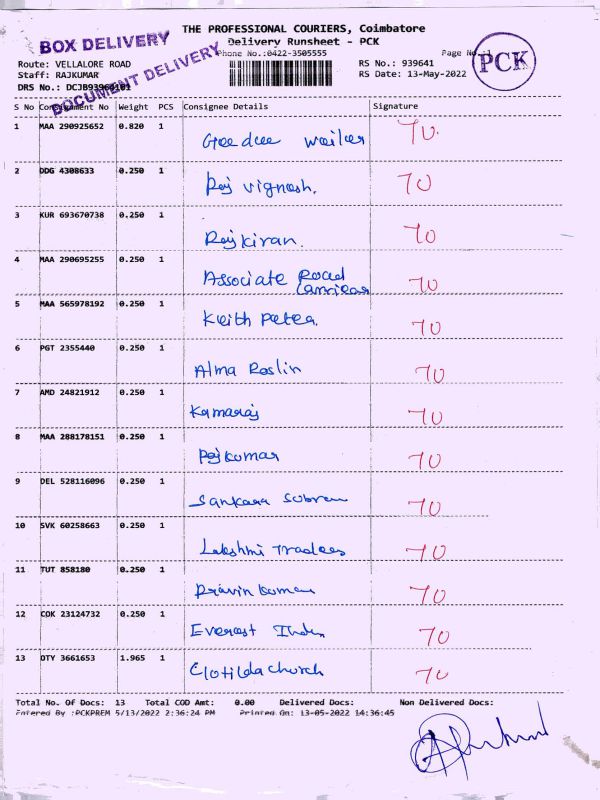 THE PROFESSIONAL COURIERS, Coimbatore
BOX DELIVERY
Delivery Runsheet - PCK
Phone No.:0422-3505555
Page No :1
PCK
Route: VELLALORE ROAD
RS No.: 939641
Staff: RAJKUMAR
RS Date: 13-May-2022
DOCUMENT DELIVERY
DRS No.:
S No Consignment No Weight PCS Consignee Details Signature
1 MAA 290925652 0.820 1 70.
2 DDG 4308633 0.250 1 Raj vignesh. 70
3 KUR 693670738 0.250 1 Rajkiran. 70
4 MAA 290695255 0.250 1 Associate Road 70
Carriers
5 MAA 565978192 0.250 1 Keith Peter. 70
6 PGT 2355440 0.250 1 Alma Roslin 70
7 AMD 24821912 0.250 1 Kamaraj 70
8 MAA 288178151 0.250 1 Rajkumar 70
9 DEL 528116096 0.250 1 Sankara Subram 70
10 SVK 60258663 0.250 1 Lakshmi Traders 70
11 TUT 858180 0.250 1 Pravin kumar 70
12 COK 23124732 0.250 1 Everest 70
13 OTY 3661653 1.965 1 Clotilda church 70
Total No. Of Docs: 13 Total COD Amt: 0.00 Delivered Docs: Non Delivered Docs:
Entered By :PCKPREM 5/13/2022 2:36:24 PM Printed On: 13-05-2022 14:36:45